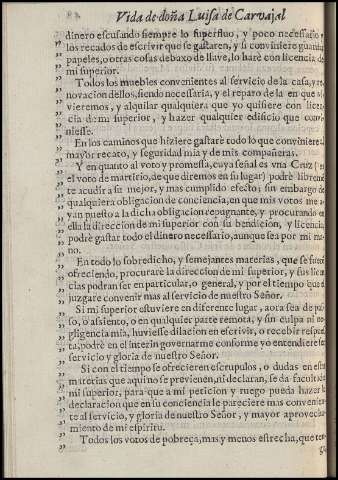 Vida de doña Luisa de Carvajal
dinero escusando siempre lo superfluo, y poco necessario y
los recados de escrivir que se gastaren, y si conviniere guardar
papeles, o otras cosas debaxo de llave, lo harè con licencia de
mi superior.
Todos los muebles convenientes al servicio de la casa, y re
novacion dellos, siendo necessaria, y el reparo de la en que vi
vieremos, y alquilar qualquiera que yo quisiere con licen
cia de mi superior, y hazer qualquier edificio que conv
niesse.
En los caminos que hiziere gastarè todo lo que conviniere al
mayor recato, y seguridad mia y de mis compañeras.
Y en quanto al voto y promessa, cuya señal es vna Cruz (
el voto de martirio, de que diremos en su lugar) podrè libreme
te acudir a su mejor, y mas cumplido efecto; sin embargo de
qualquiera obligacion de conciencia, en que mis votos me a
yan puesto a la dicha obligacion repugnante, y procurando en
ella la direccion de mi superior con su bendicion, y licencia,
podrè gastar todo el dinero necessario, aunque sea por mi ma
no.
En todo lo sobredicho, y semejantes materias, que se fueré
ofreciendo, procurarè la direccion de mi superior, y sus licē
cias podran ser en particular, o general, y por el tiempo que el
juzgare convenir mas al servicio de nuestro Señor.
Si mi superior estuviere en diferente lugar, aora sea de pa
so, ò assiento, o en qualquier parte remota, y sin culpa ni ne
gligencia mia, huviesse dilacion en escrivir, o recebir respues
ta, podrè en el interin governarme conforme yo entendiere ser
servicio y gloria de nuestro Señor.
Si con el tiempo se ofrecieren escrupulos, o dudas en estas
materias que aqui no se previenen, ni declaran, se da facultad a
mi superior, para que a mi peticion y ruego pueda hazer la
declaracion que en su conciencia le pareciere mas convenien
te al servicio, y gloria de nuestro Señor, y mayor aprovecha
miento de mi espiritu.
Todos los votos de pobreça, mas y menos estrecha, que ten